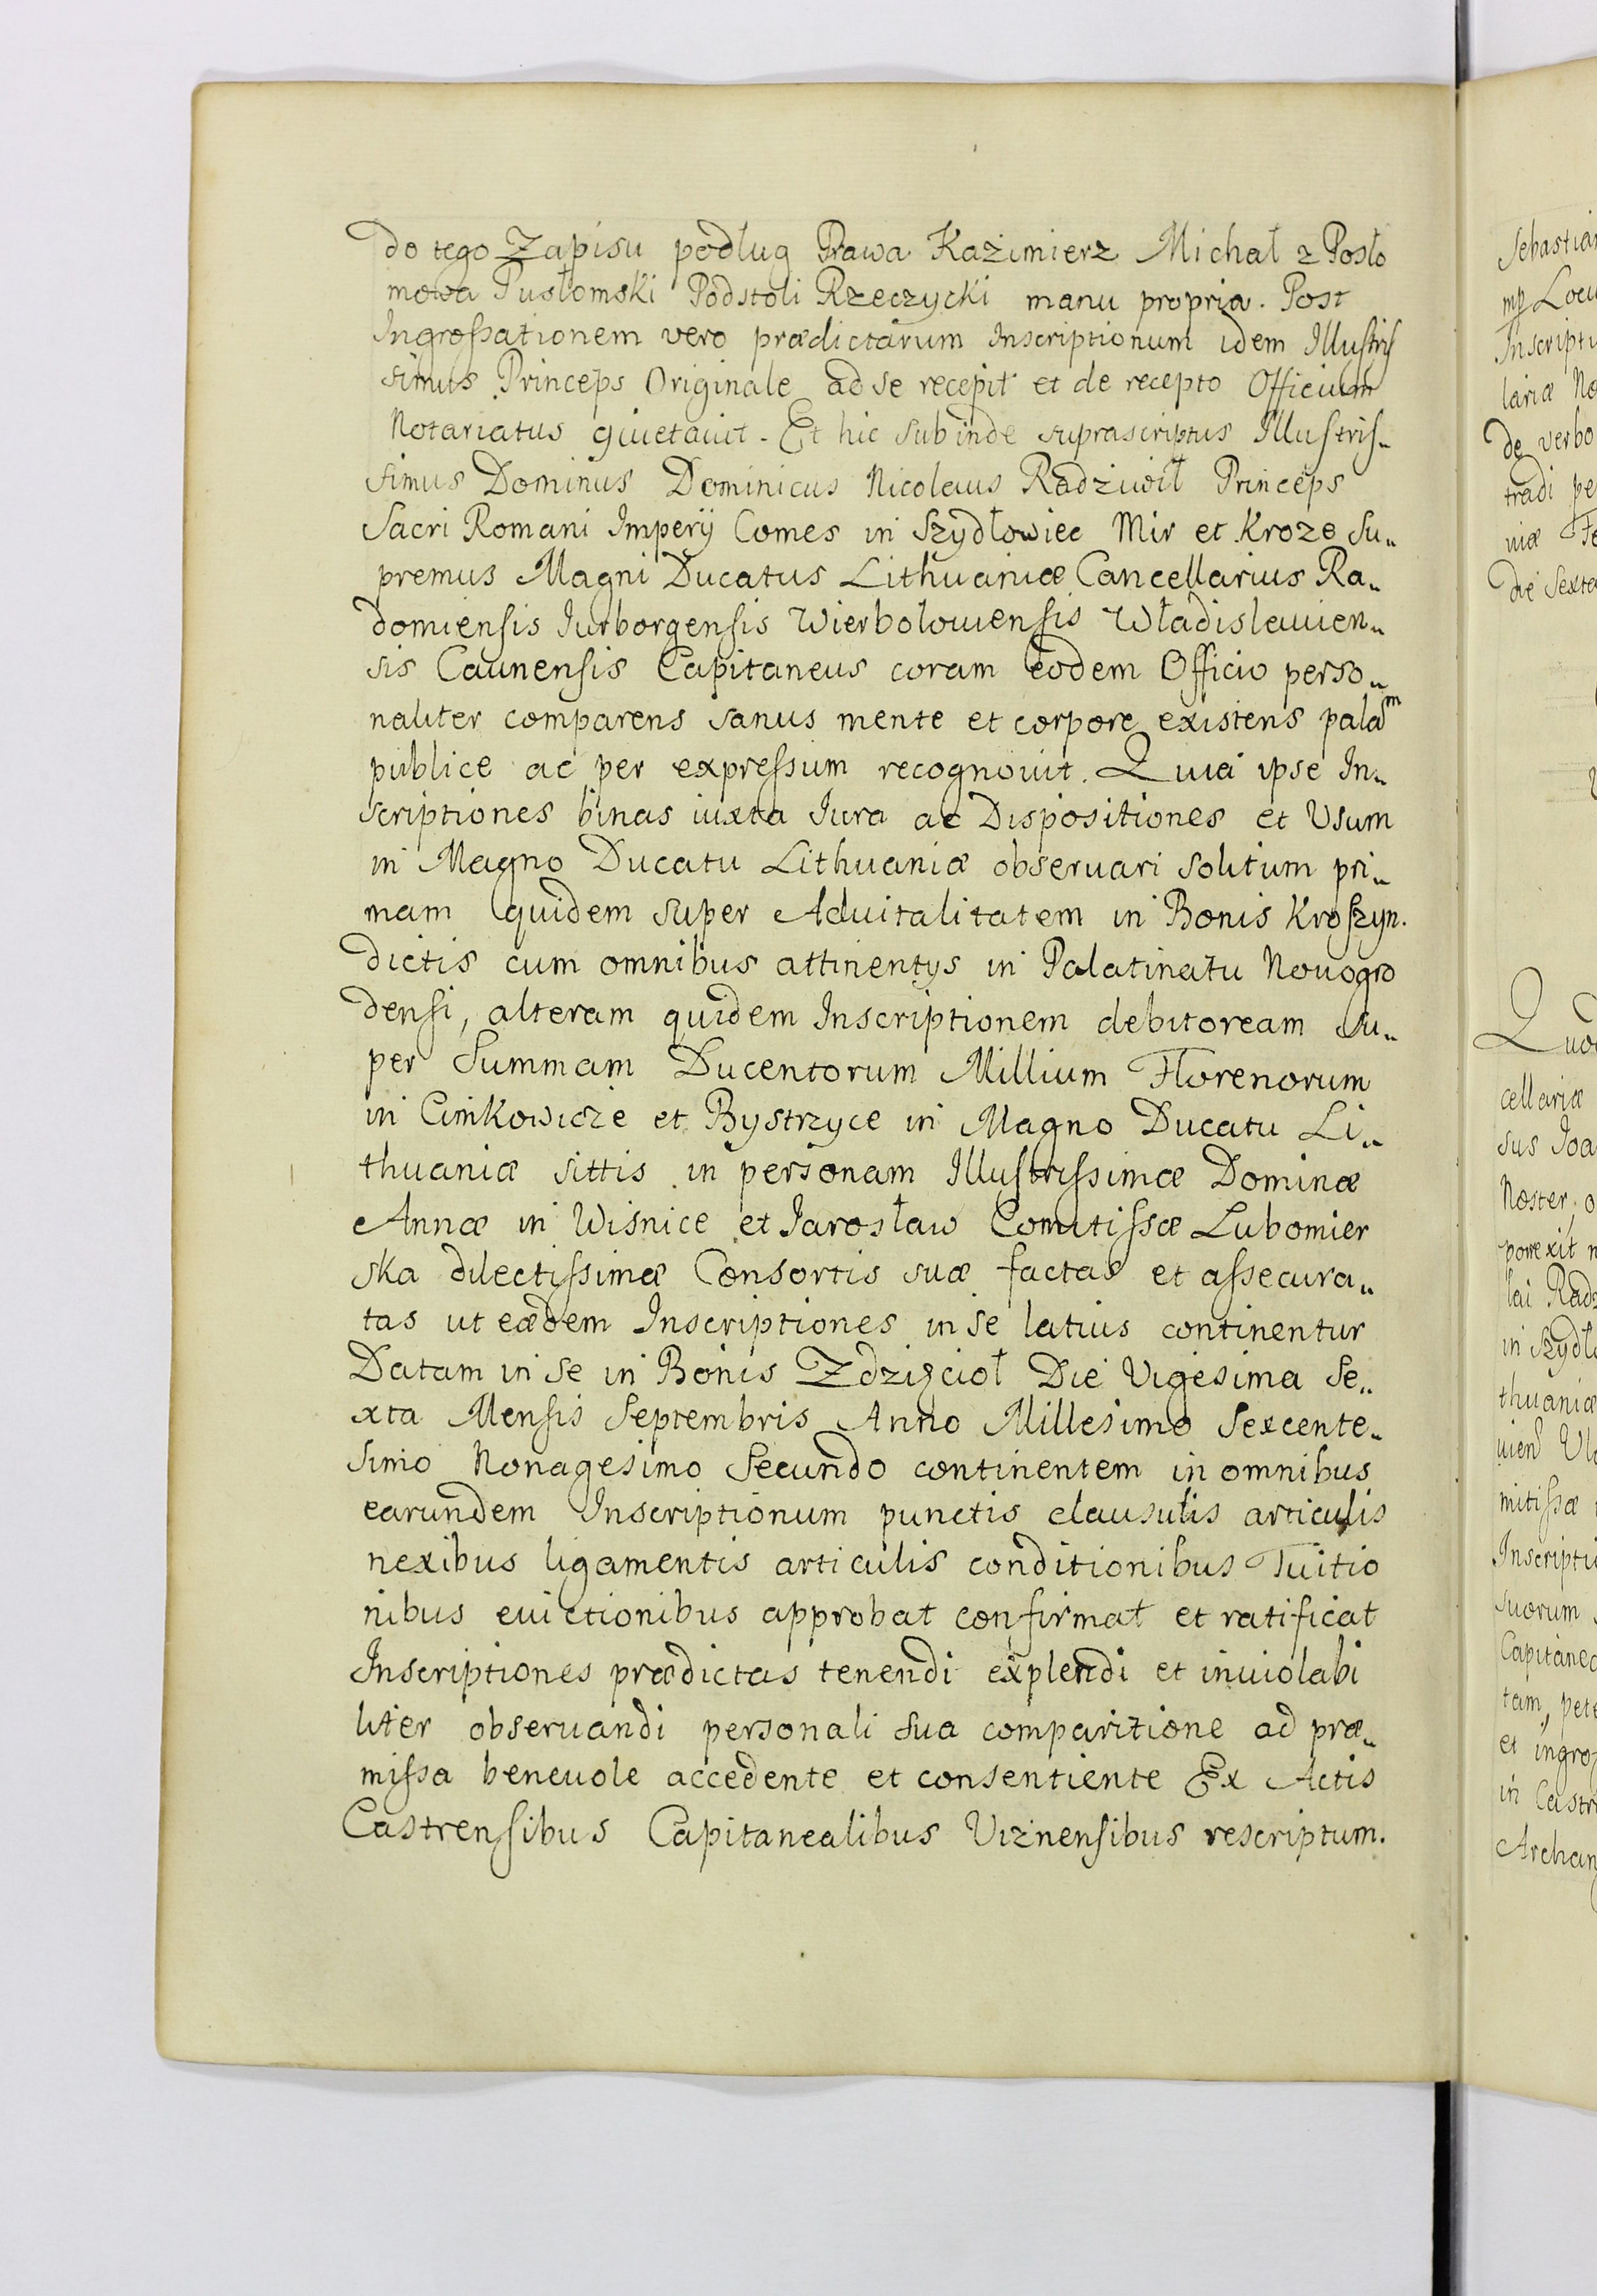 do tego Zapisu podług Prawa Kaźimierz Michał z Posło
mowa Pusłomski Podstoli Rzeczycki manu propria. Post
Ingrossationem vero prædictarum Inscriptionum idem Illustris
simus Princeps Originale ad se recepit et de recepto Officium
Notariatus quietauit. Et hic subinde suprascriptus Illustris„
simus Dominus Dominicus Nicolaus Radziwił Princeps
Sacri Romani Imperij Comes in Szydłowiec Mir et Kroze Su„
premus Magni Ducatus Lithuaniæ Cancellarius Ra„
domiensis Jurborgensis Wierbolouiensis Władislauien„
sis Caunensis Capitaneus coram eodem Officio perso„
naliter comparens sanus mente et corpore existens palam
publice ac per expressum recognouit. Quia ipse In„
scriptiones binas iuxta Jura ac Dispositiones et Usum
in Magno Ducatu Lithuaniæ obseruari solitum pri„
mam quidem super Aduitalitatem in Bonis Kroszyn.
dictis cum omnibus attinentys in Palatinatu Nouogro
densi, alteram quidem Inscriptionem debitoream su„
per Summam Ducentorum Millium Florenorum
in Cimkowicze et Bystrzyce in Magno Ducatu Li„
thuaniæ sittis in personam Illustrissimæ Dominæ
Annæ in Wisnice et Jarosław Comitissæ Lubomier
ska dilectissimæ Consortis suæ factas et assecura„
tas ut eædem Inscriptiones in se latius continentur
Datam in se in Bonis Zdzięcioł Die Vigesima Se„
xta Mensis Septembris Anno Millesimo Sexcente„
simo Nonagesimo Secundo continentem in omnibus
earundem Inscriptionum punctis clausulis articulis
nexibus ligamentis articulis conditionibus Tuitio
nibus euictionibus approbat confirmat et ratificat
Inscriptiones prædictas tenendi explendi et inuiolabi
liter obseruandi personali sua comparitione ad præ„
missa beneuole accedente et consentiente Ex Actis
Castrensibus Capitanealibus Viznensibus rescriptum.